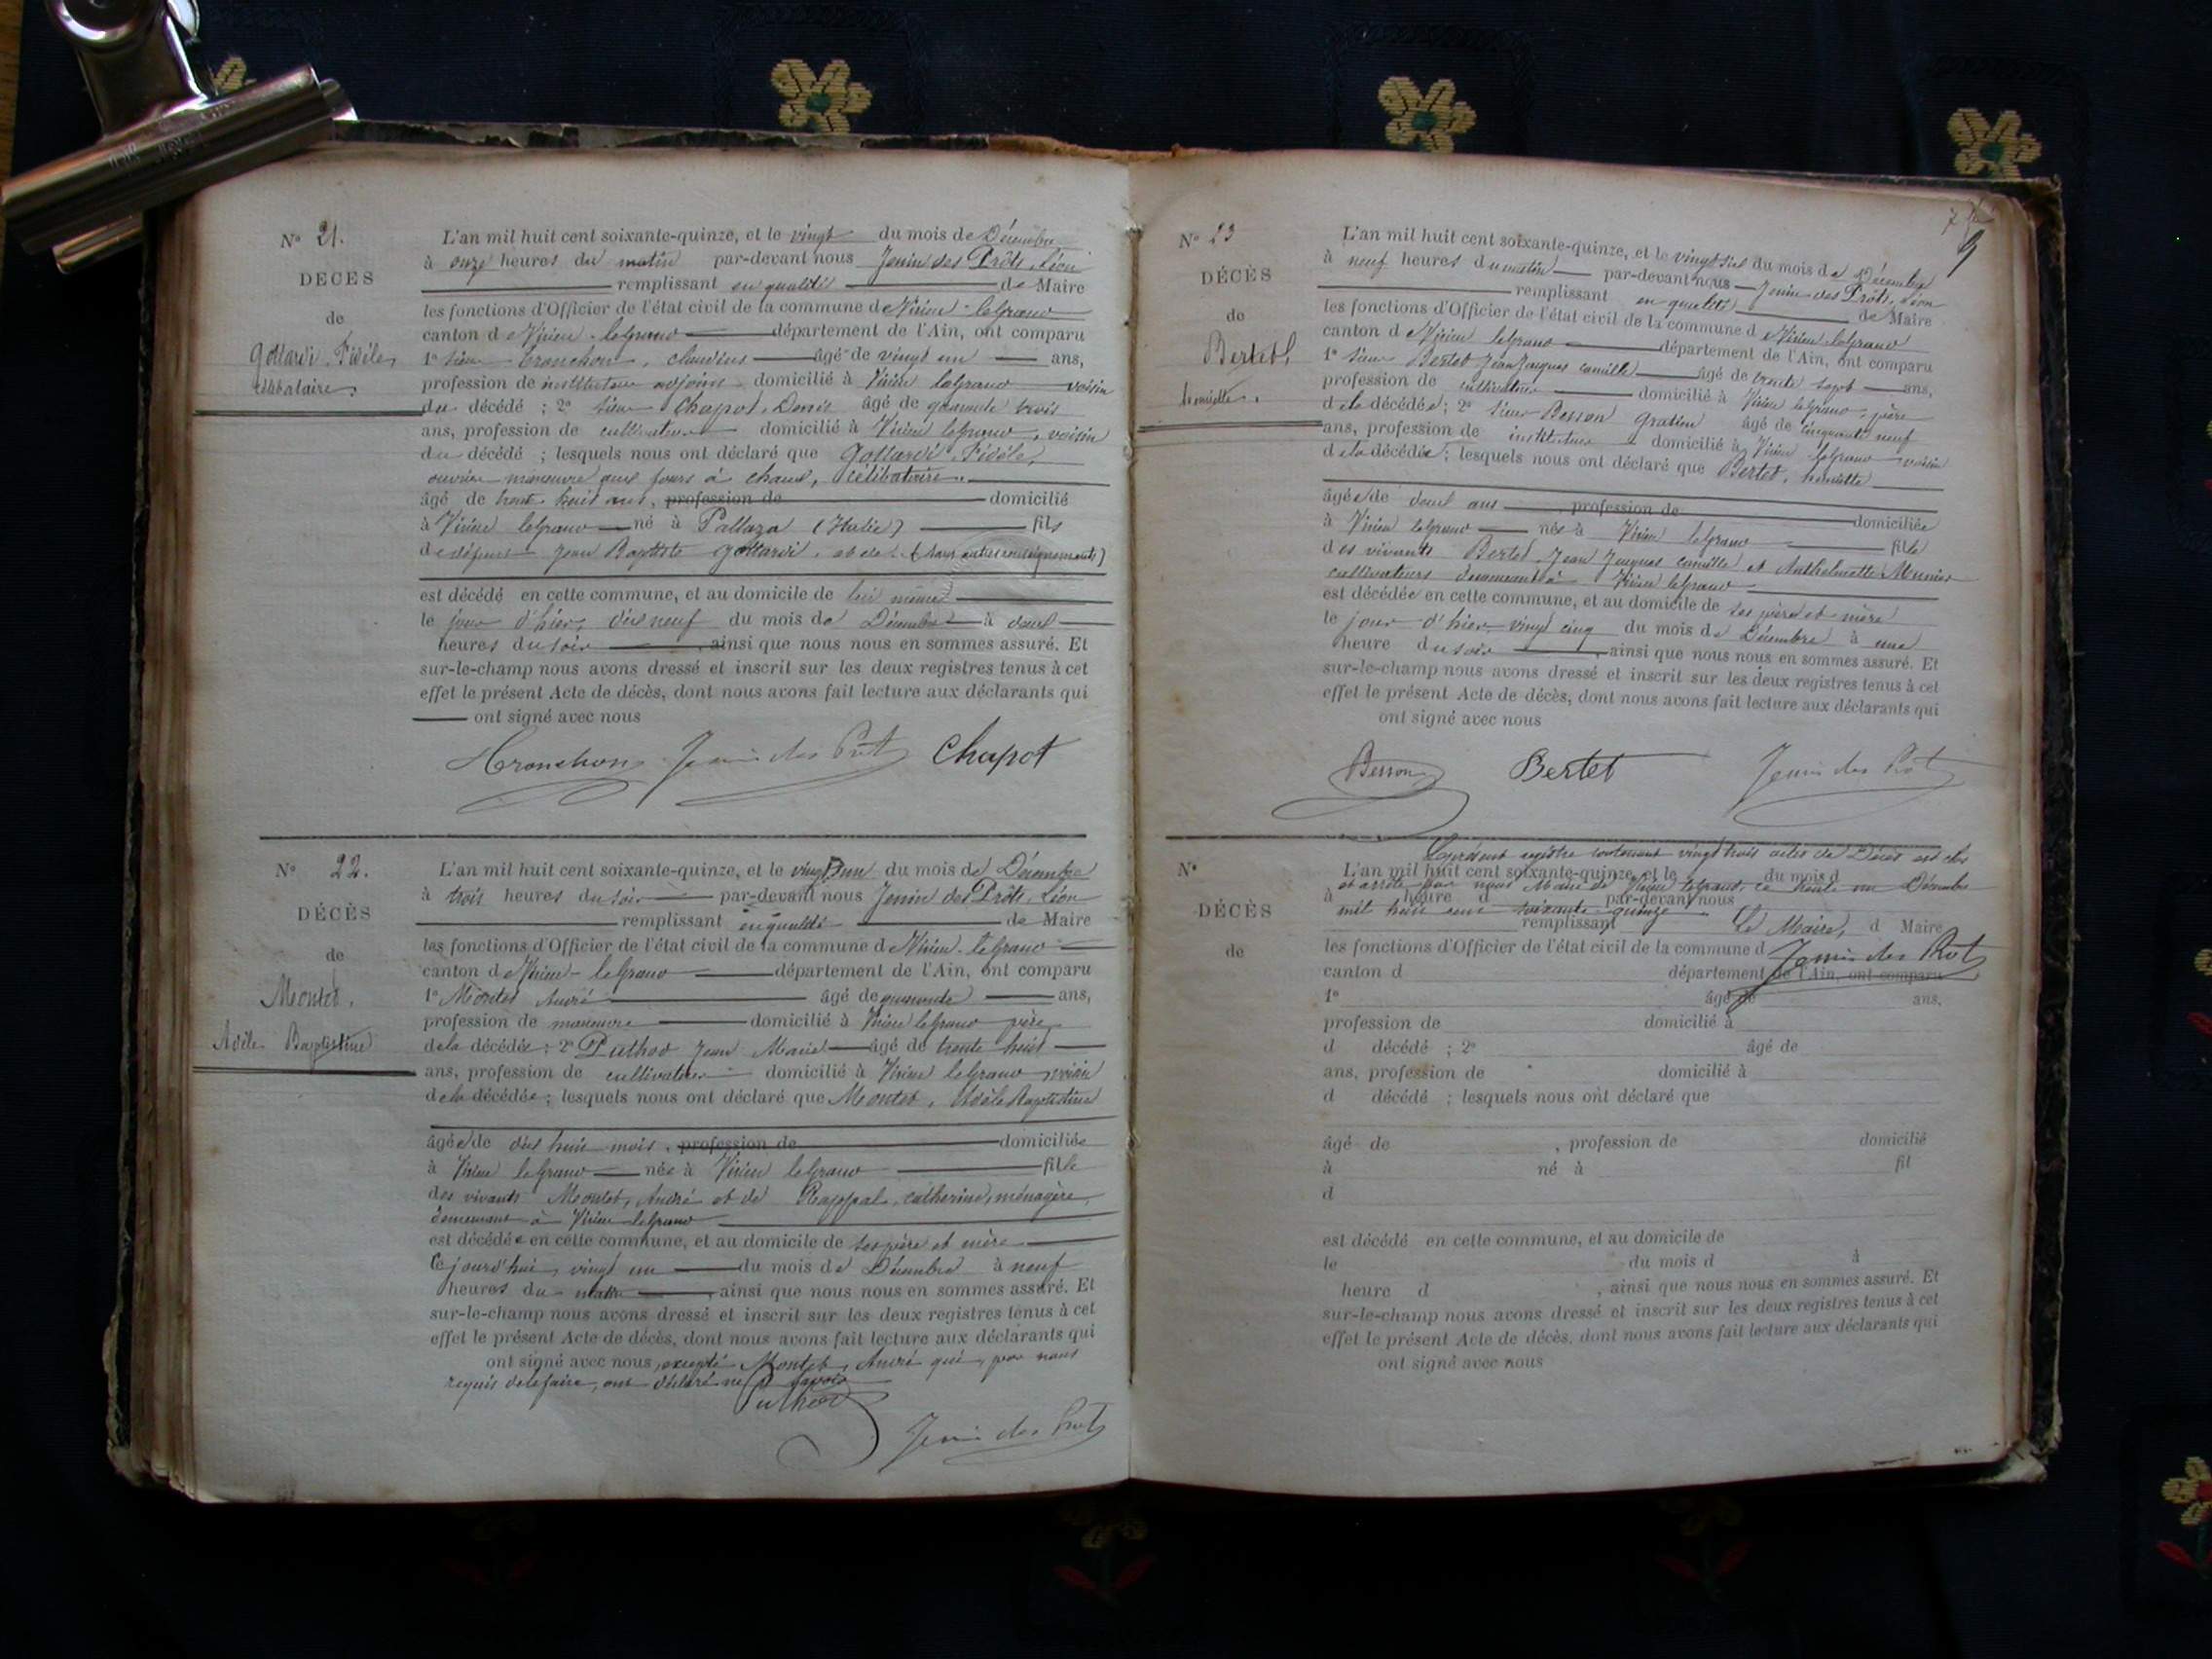 N° 21.
DÉCÈS
de
Gottardi Fidèle,
célibataire.
L'an mil huit cent soixante-quinze, et le vingt du mois de Décembre
à onze heures du matin par-devant nous Jenin des Prôts, Léon
remplissant en qualité de Maire
les fonctions d'Officier de l'état civil de la commune de Virieu-le-grand
canton de Virieu-legrand département de l'Ain, ont comparu
1° sieur Tronchon, claudius âgé de vingt un ans,
profession de instituteur adjoint domicilié à Virieu legrand voisin
du décédé ; 2° sieur Chapot, Denis âgé de quarante trois
ans, profession de cultivateur domicilié à Virieu legrand, voisin
du décédé ; lesquels nous ont déclaré que Gottardi Fidèle,
ouvrier manoeuvre aux fours à chaux, célibataire.
âgé de trente huit ans, profession de domicilié
à Virieu legrand né à Pallaza (Italie) fils
de défunt Jean Baptiste Gottardi, et de (sans autres renseignements)
est décédé en cette commune, et au domicile de lui même
le jour d'hier, dix neuf du mois de Décembre à deux
heures du soir, ainsi que nous nous en sommes assuré. Et
sur-le-champ nous avons dressé et inscrit sur les deux registres tenus à cet
effet le présent Acte de décès, dont nous avons fait lecture aux déclarants qui
ont signé avec nous
Tronchon Jenin des Prôts Chapot
N° 22.
DÉCÈS
de
Montet.
Adèle Baptistine
L'an mil huit cent soixante-quinze, et le vingt un du mois de Décembre
à trois heures du soir par-devant nous Jenin des Prôts, Léon
remplissant en qualité de Maire
les fonctions d'Officier de l'état civil de la commune de Virieu-legrand
canton de Virieu-legrand département de l'Ain, ont comparu
1° Montet André âgé de quarante ans,
profession de manoeuvre domicilié à Virieu legrand père
de la décédée ; 2° Puthod Jean Marie âgé de trente huit
ans, profession de cultivateur domicilié à Virieu legrand, voisin
de la décédée ; lesquels nous ont déclaré que Montet, Adèle Baptistine
âgée de dix huit mois, profession de domiciliée
à Virieu legrand née à Virieu legrand fille
des vivants Montet, André et de Rappal, catherine, ménagère,
demeurant à Virieu-legrand
est décédée en cette commune, et au domicile de ses père et mère
Ce jourd'hui, vingt un du mois de Décembre à neuf
heures du matin, ainsi que nous nous en sommes assuré. Et
sur-le-champ nous avons dressé et inscrit sur les deux registres tenus à cet
effet le présent Acte de décès, dont nous avons fait lecture aux déclarants qui
ont signé avec nous, excepté Montet, André qui, par nous
requis de le faire, ont déclaré ne savoir
Puthod
Jenin des Prôts
N° 23
DÉCÈS
de
Bertet,
henriette.
L'an mil huit cent soixante-quinze, et le vingt six du mois de Décembre
à neuf heures du matin par-devant nous Jenin des Prôts, Léon
remplissant en qualité de Maire
les fonctions d'Officier de l'état civil de la commune de Virieu legrand
canton de Virieu legrand département de l'Ain, ont comparu
1° sieur Bertet Jean Jacques camille âgé de trente sept ans,
profession de cultivateur domicilié à Virieu legrand, père
de la décédée ; 2° sieur Besson Gratien âgé de cinquante neuf
ans, profession de instituteur domicilié à Virieu legrand voisin
de la décédée ; lesquels nous ont déclaré que Bertet, henriette
âgée de deux ans, profession de domiciliée
à Virieu legrand née à Virieu legrand fille
des vivants Bertet, Jean Jacques camille et Anthelmette Munier
cultivateurs demeurant à Virieu legrand
est décédée en cette commune, et au domicile de ses père et mère
le jour d'hier, vingt cinq du mois de Décembre à une
heure du soir, ainsi que nous nous en sommes assuré. Et
sur-le-champ nous avons dressé et inscrit sur les deux registres tenus à cet
effet le présent Acte de décès, dont nous avons fait lecture aux déclarants qui
ont signé avec nous
Besson Bertet Jenin des Prôts
N°
DÉCÈS
de
Le présent registre contenant vingt trois actes de Décès est clos
L'an mil huit cent soixante-quinze, et le du mois d
et arrêté par nous Maire de Virieu legrand, ce trente un Décembre
à heure d par-devant nous
mil huit cent soixante-quinze. Le Maire,
remplissant d Maire
les fonctions d'Officier de l'état civil de la commune d
Jenin des Prôts
canton d département de l'Ain, ont comparu
1° âgé de ans,
profession de domicilié à
d décédé ; 2° âgé de
ans, profession de domicilié à
d décédé ; lesquels nous ont déclaré que
âgé de , profession de domicilié
à né à fil
d
est décédé en cette commune, et au domicile de
le du mois d à
heure d , ainsi que nous nous en sommes assuré. Et
sur-le-champ nous avons dressé et inscrit sur les deux registres tenus à cet
effet le présent Acte de décès, dont nous avons fait lecture aux déclarants qui
ont signé avec nous